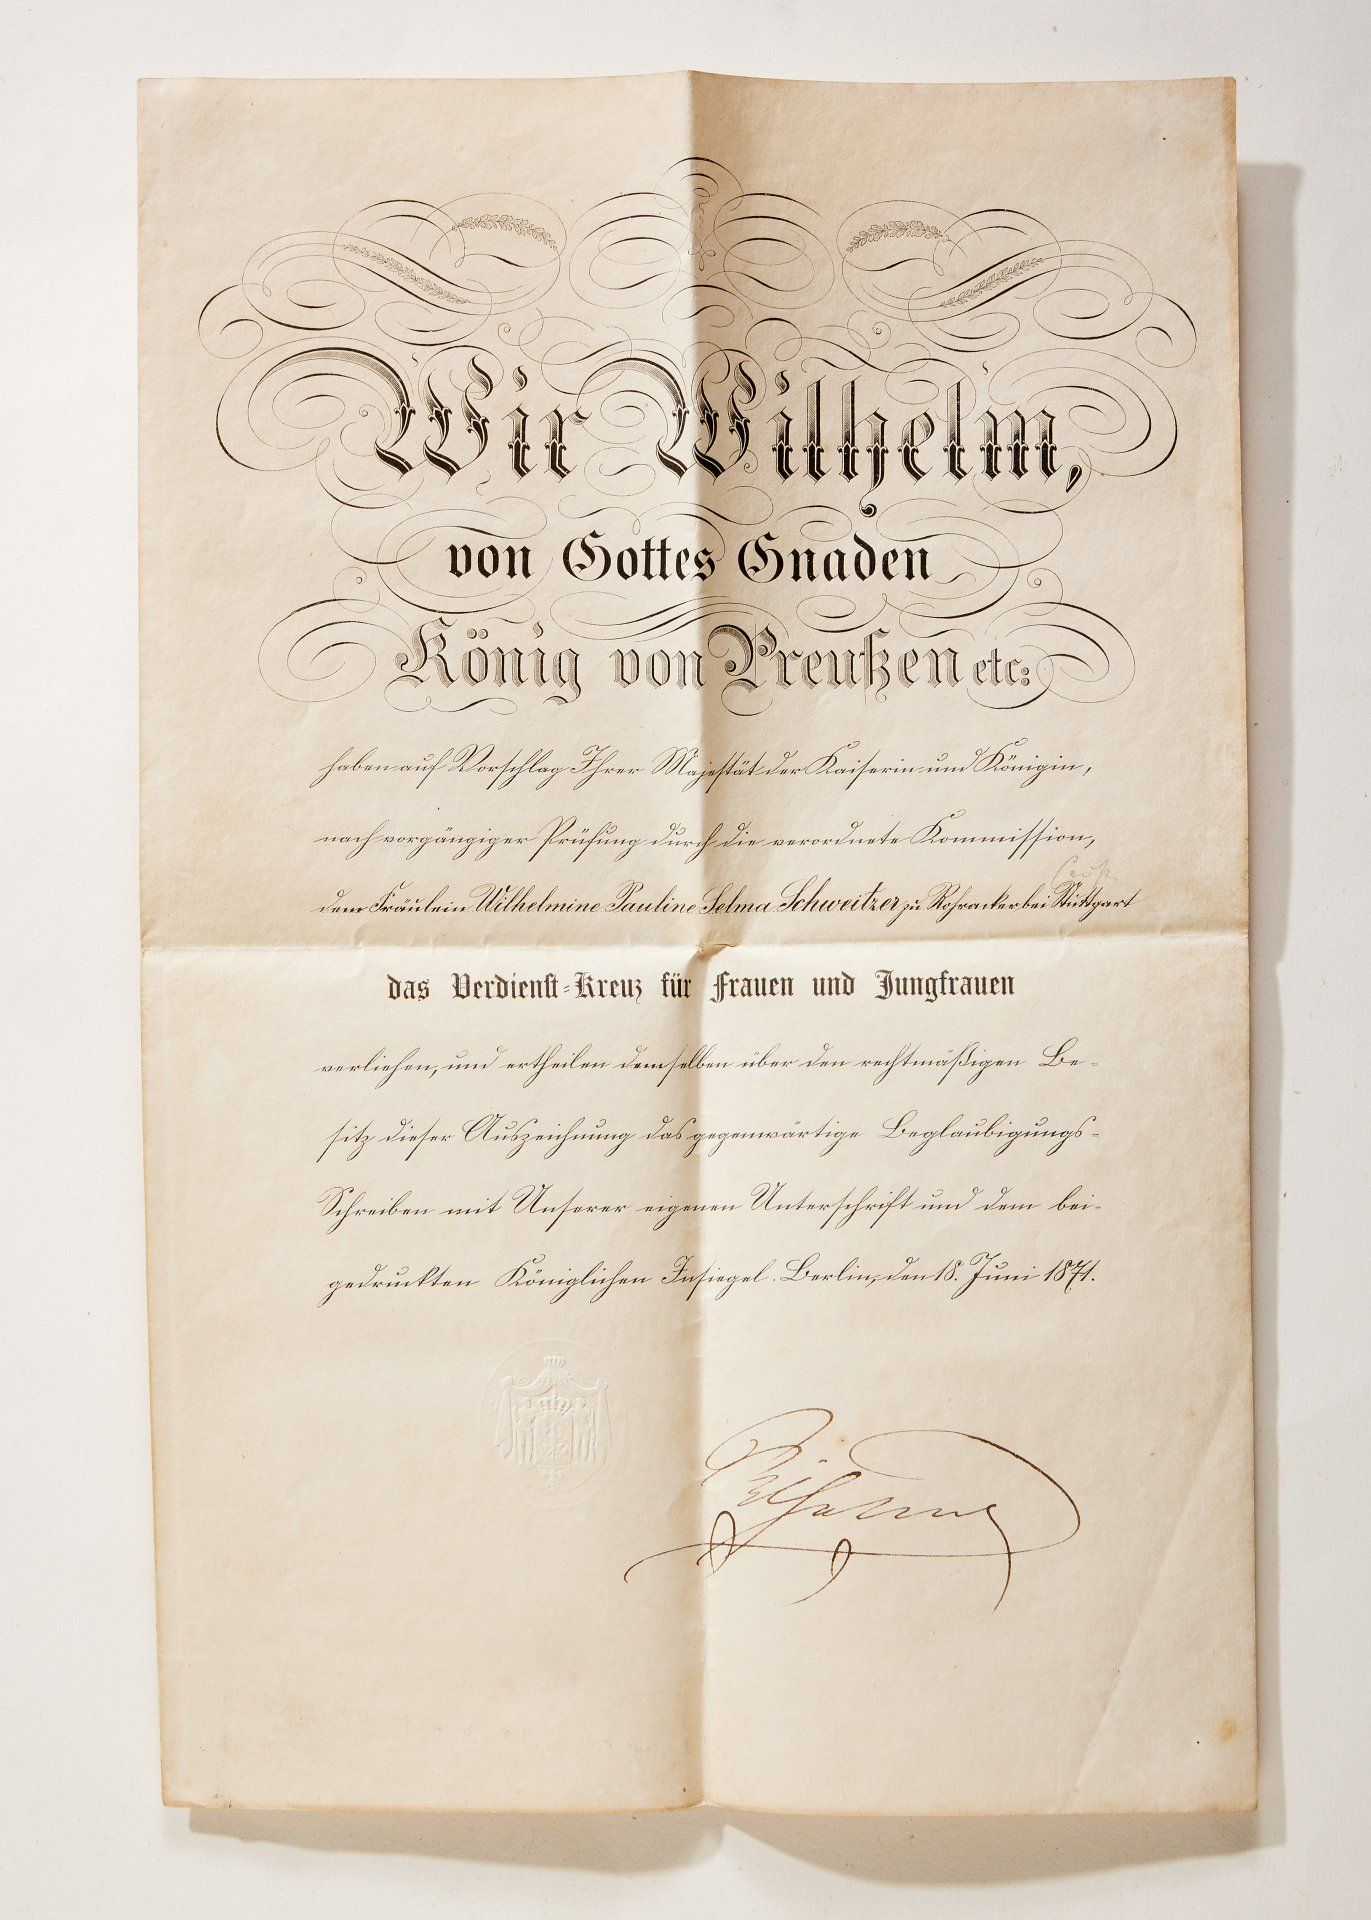 Wir Wilhelm,
von Gottes Gnaden
König von Preußen etc:
haben auf Vorschlag Ihrer Majestät der Kaiserin und Königin,
nach vorgängiger Prüfung durch die verordnete Kommission,
dem Fräulein Wilhelmine Pauline Selma Schweitzer zu Rohracker bei Stuttgart
das Verdienst-Kreuz für Frauen und Jungfrauen
verliehen, und ertheilen demselben über den rechtmäßigen Be-
sitz dieser Auszeichnung das gegenwärtige Beglaubigungs-
Schreiben mit Unserer eigenen Unterschrift und dem bei-
gedruckten Königlichen Insiegel. Berlin, den 18. Juni 1871.
Wilhelm